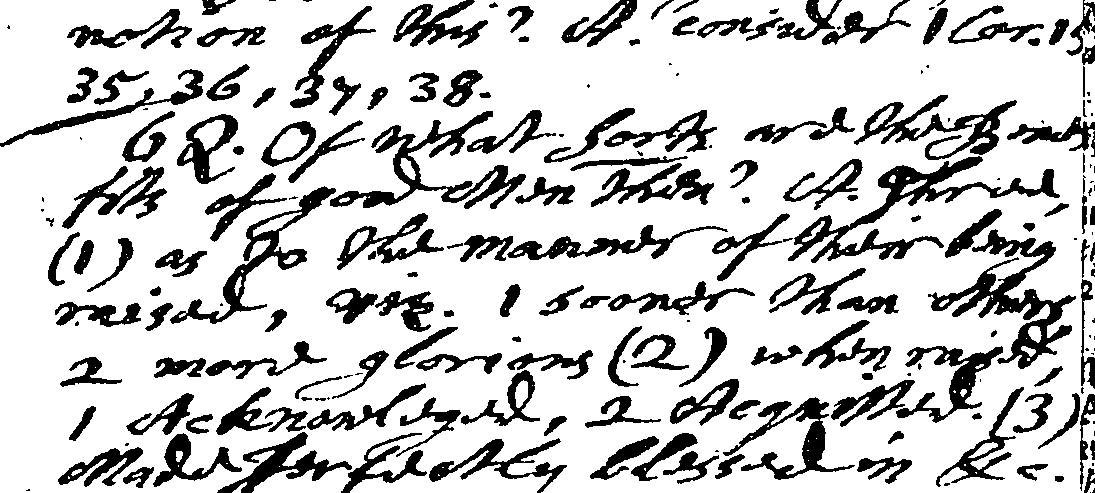 notion of this? A. consider 1 Cor. 15
35, 36, 37, 38.
6 Q. Of what sorts are the Bene
fits of good Men then? A. Three,
(1) as to the manner of their being
raised, viz. 1 sooner than others
2 more glorious (2) when raised,
1 Acknowleged, 2 Acquitted. (3)
Made perfectly blessed in &c.